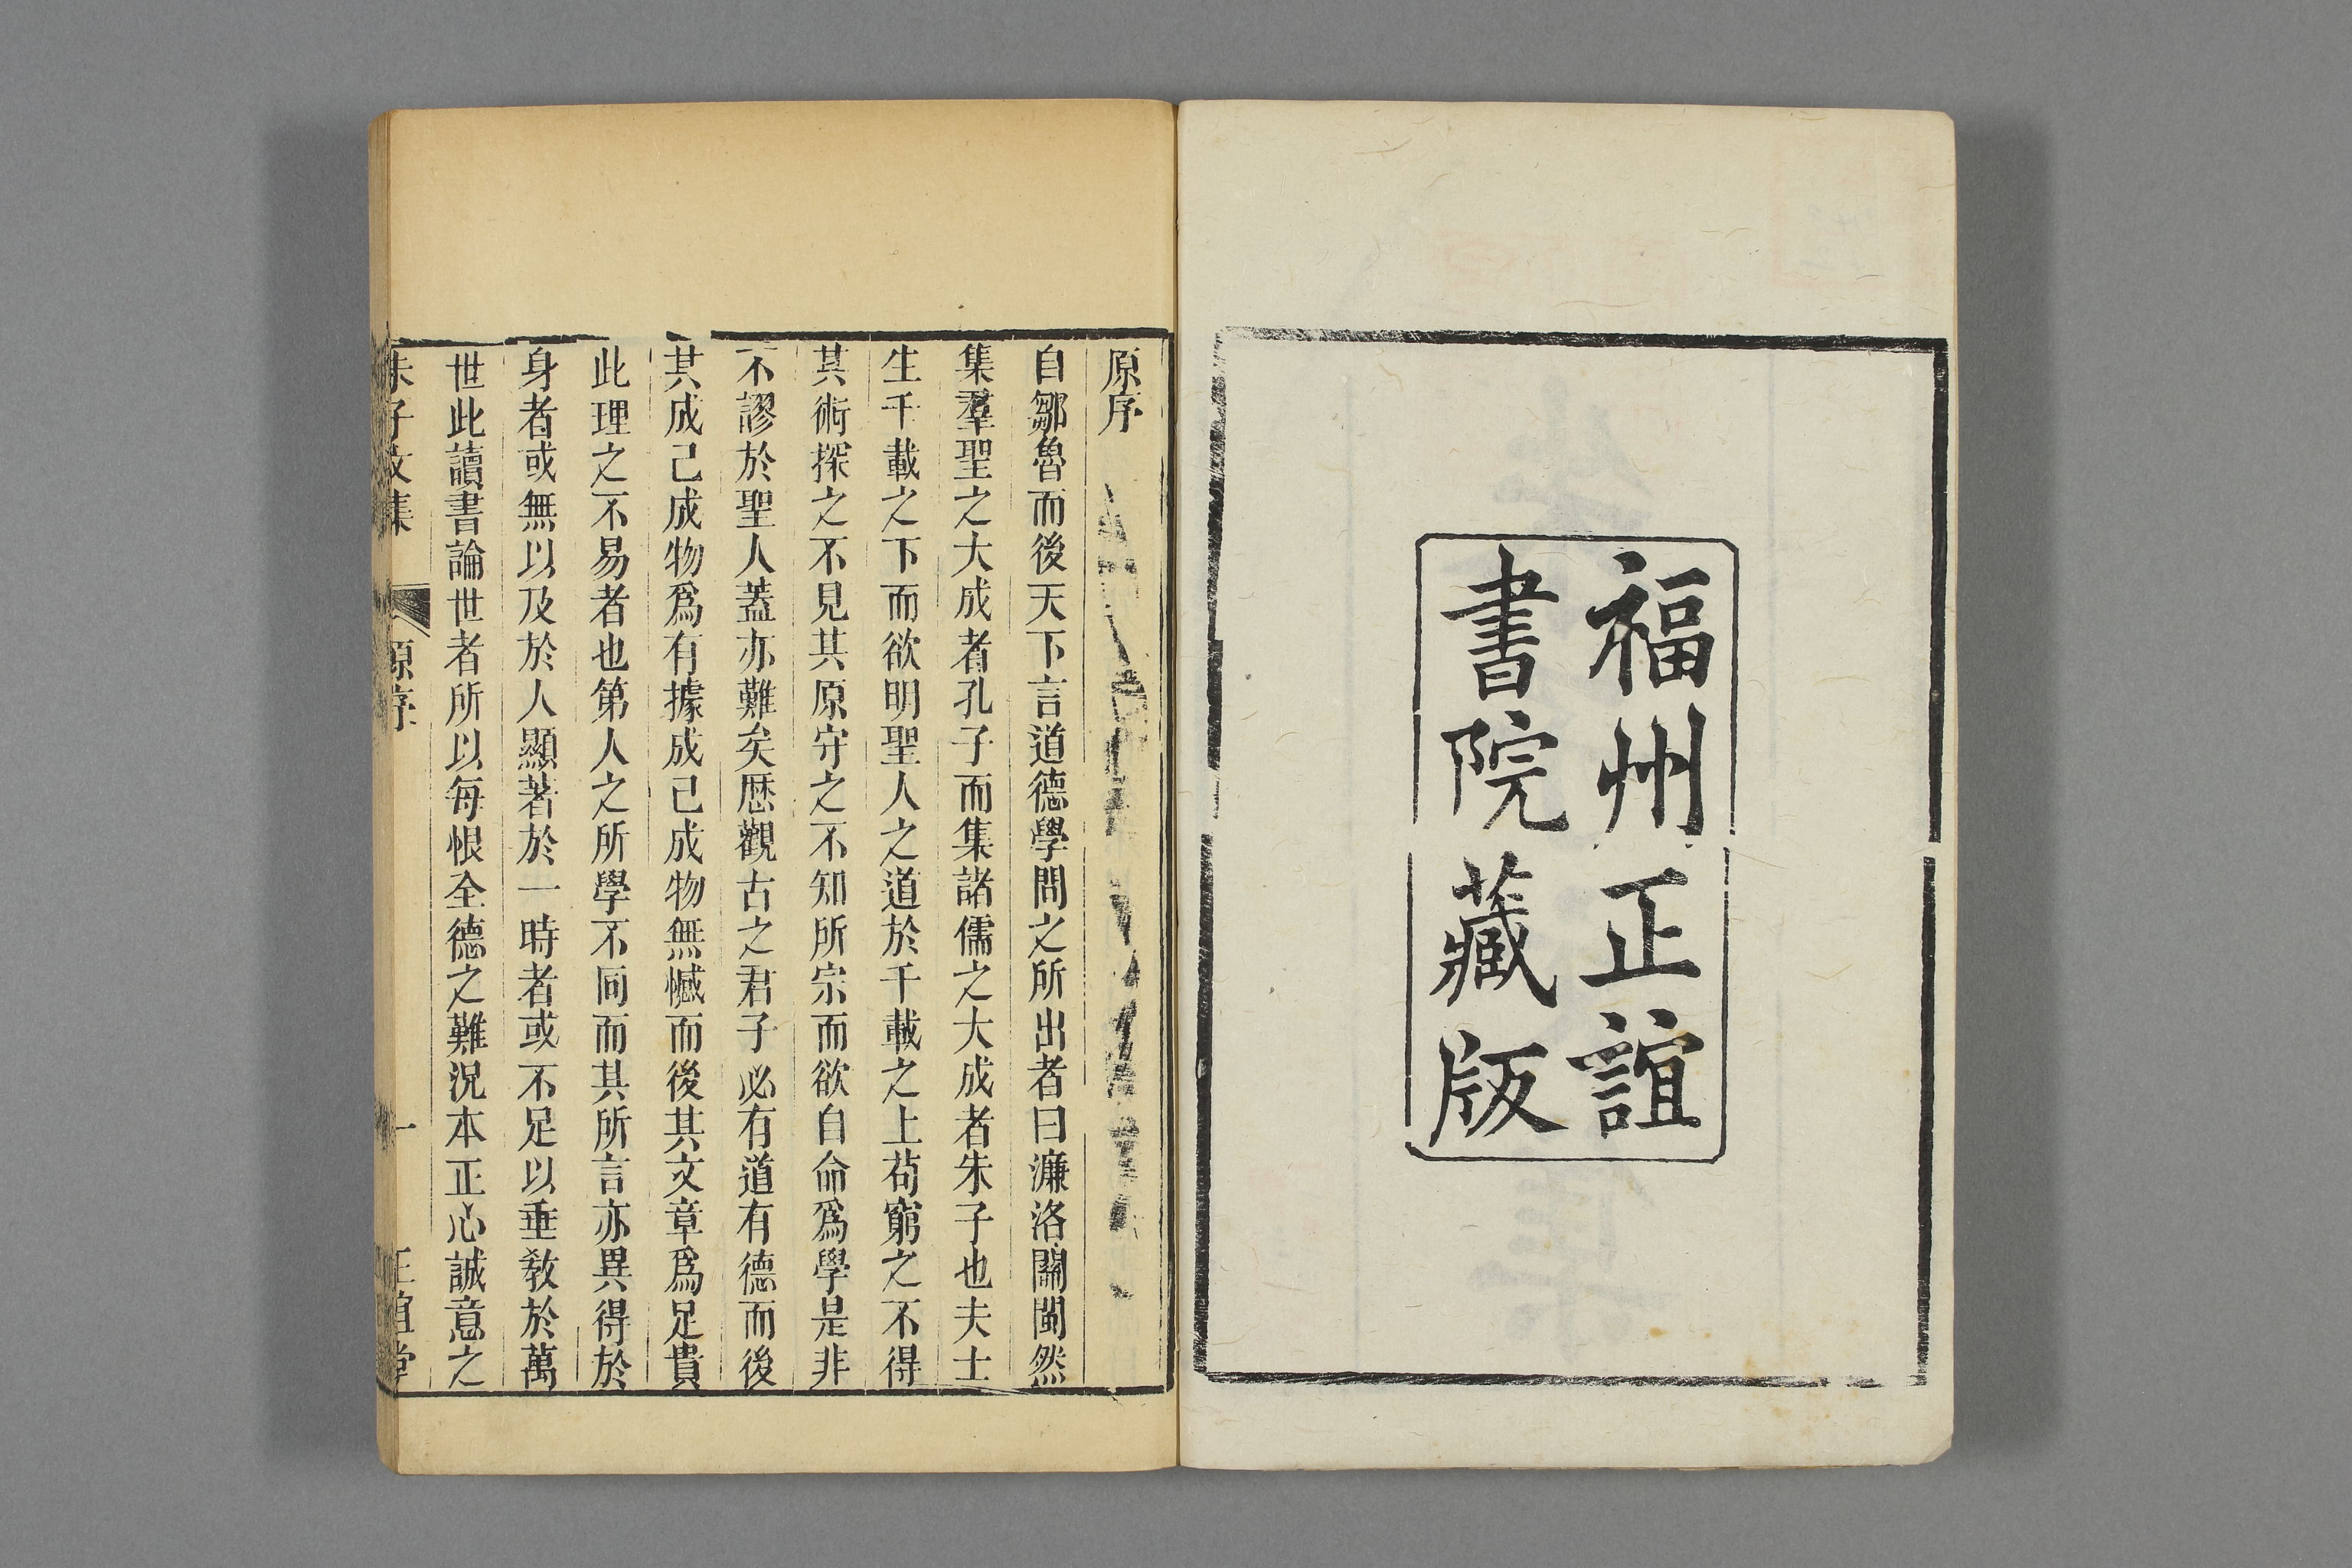 福州正誼
書院藏版
原序
自鄒魯而後天下言道德學問之所出者曰濂洛關閩然
集羣聖之大成者孔子而集諸儒之大成者朱子也夫士
生千載之下而欲明聖人之道於千載之上苟窮之不得
其術探之不見其原守之不知所宗而欲自命爲學是非
不謬於聖人蓋亦難矣歴觀古之君子必有道有德而後
其成己成物爲有據成己成物無憾而後其文章爲足貴
此理之不易者也第人之所學不同而其所言亦異得於
身者或無以及於人顯著於一時者或不足以垂敎於萬
世此讀書論世者所以每恨全德之難況本正心誠意之
朱子文集 原序 一 正誼堂